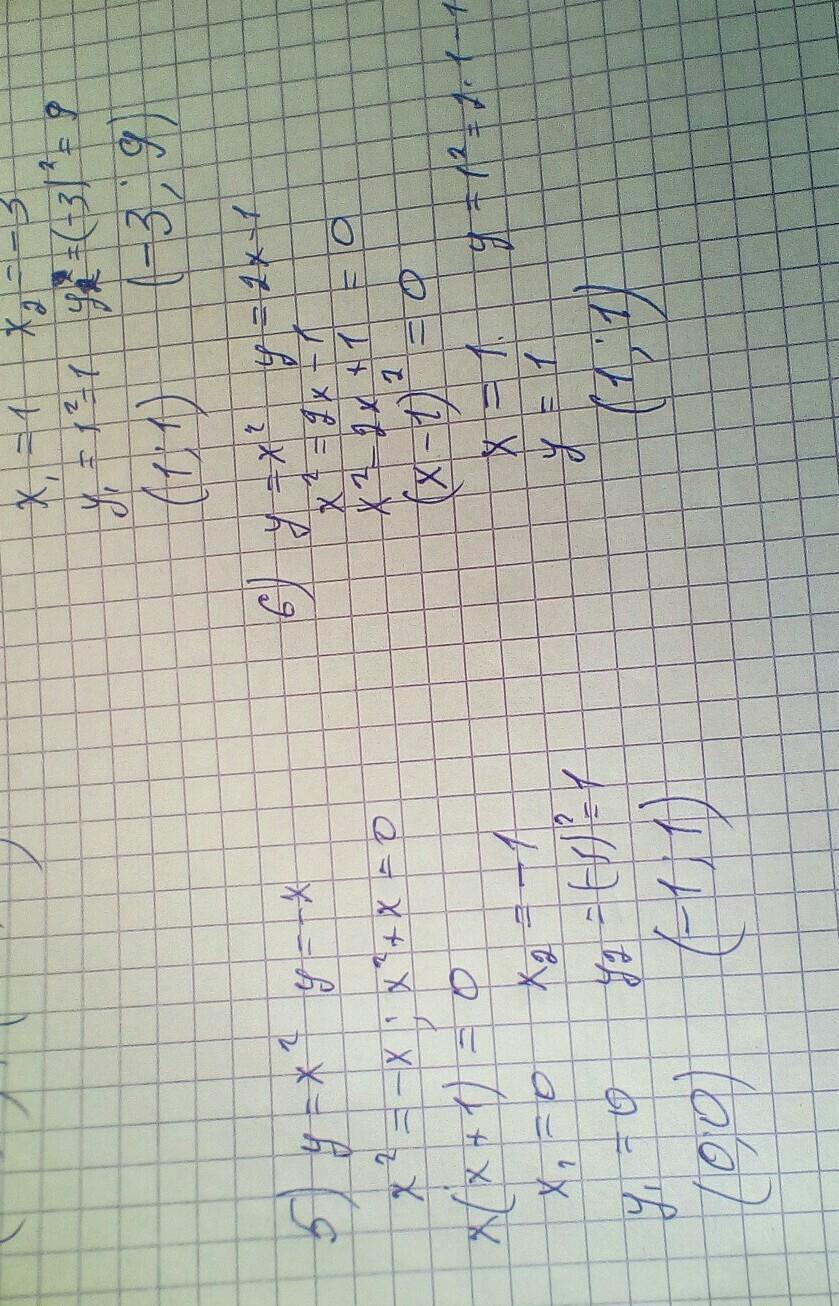 x₁ = 1 x₂ = -3
y₁ = 1² = 1 = (-3)² = 9
(1; 1) (-3; 9)
5) y = x² y = -x
x² = -x; x² + x = 0
x(x + 1) = 0
x₁ = 0 x₂ = -1
y₁ = 0 y₂ = (-1)² = 1
(0; 0) (-1; 1)
6) y = x² y = 2x-1
x² = 2x - 1
x² - 2x + 1 = 0
(x - 1)² = 0
x = 1. y = 1² = 2·1-1
y = 1
(1; 1)